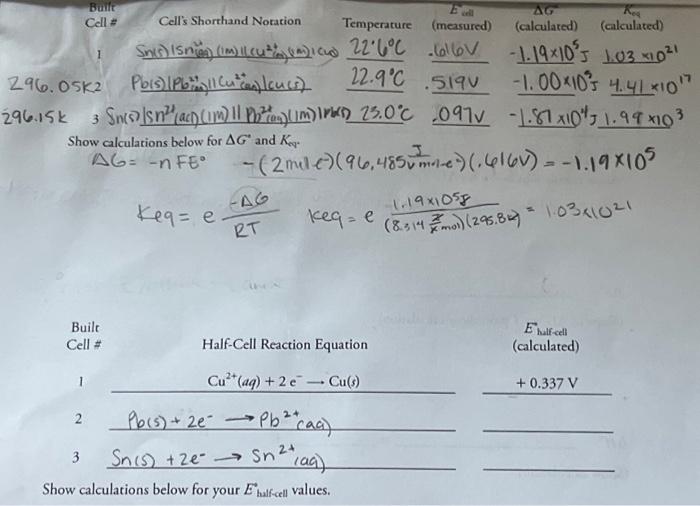 Built E°cell ΔG° Keq
Cell # Cell's Shorthand Notation Temperature (measured) (calculated) (calculated)
1 Sn(s)|Sn²⁺(aq)(1M)||Cu²⁺(aq)(1M)|Cu(s) 22.6°C .616V -1.19x10⁵J 1.03 x10²¹
296.05K 2 Pb(s)|Pb²⁺(aq)||Cu²⁺(aq)|Cu(s) 22.9°C .519V -1.00x10⁵J 4.41 x10¹⁷
296.15K 3 Sn(s)|Sn²⁺(aq)(1M)||Pb²⁺(aq)(1M)|Pb(s) 23.0°C .097V -1.87x10⁴J 1.98x10³
Show calculations below for ΔG° and Keq.
ΔG = -nFE° -(2mol e⁻)(96,485 J/V mol e⁻)(.616V) = -1.19x10⁵
Keq = e -ΔG/RT Keq = e 1.19x10⁵J/(8.314 J/K mol)(295.8K) = 1.03x10²¹
Built E°half-cell
Cell # Half-Cell Reaction Equation (calculated)
1 Cu²⁺(aq) + 2 e⁻ → Cu(s) + 0.337 V
2 Pb(s) + 2e⁻ → Pb²⁺(aq)
3 Sn(s) + 2e⁻ → Sn²⁺(aq)
Show calculations below for your E°half-cell values.